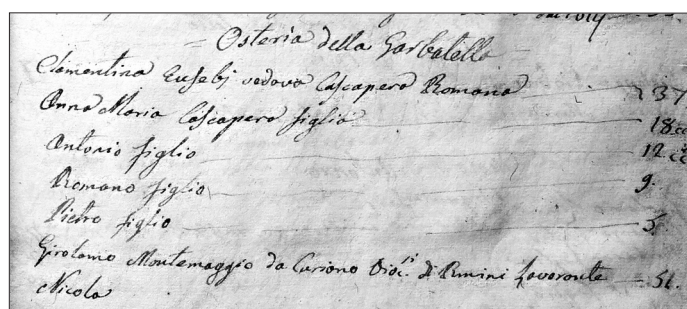 = Osteria della Garbatella =
Clementina Eusebj vedova Cascapera Romana 37
Anna Maria Cascapera figlia 18 cc
Antonio figlio 12 cc
Romano figlio 9.
Pietro figlio 5.
Girolamo Montemaggio da Curiono Dioc. di Rimini Lavorante 51.
Nicola